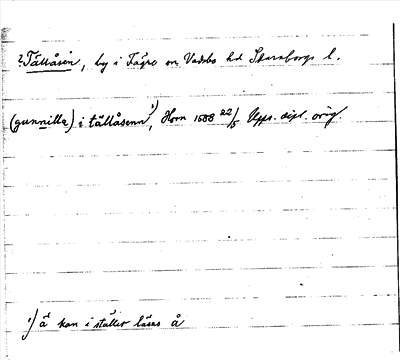 ? Tällåsen, by i Fägre sn Vadsbo hd Skaraborgs l.
(gunnilla) i tällåsenn 1), Horn 1588 22/5 Upps. dipl. orig.
1) ä kan i stället läsas å